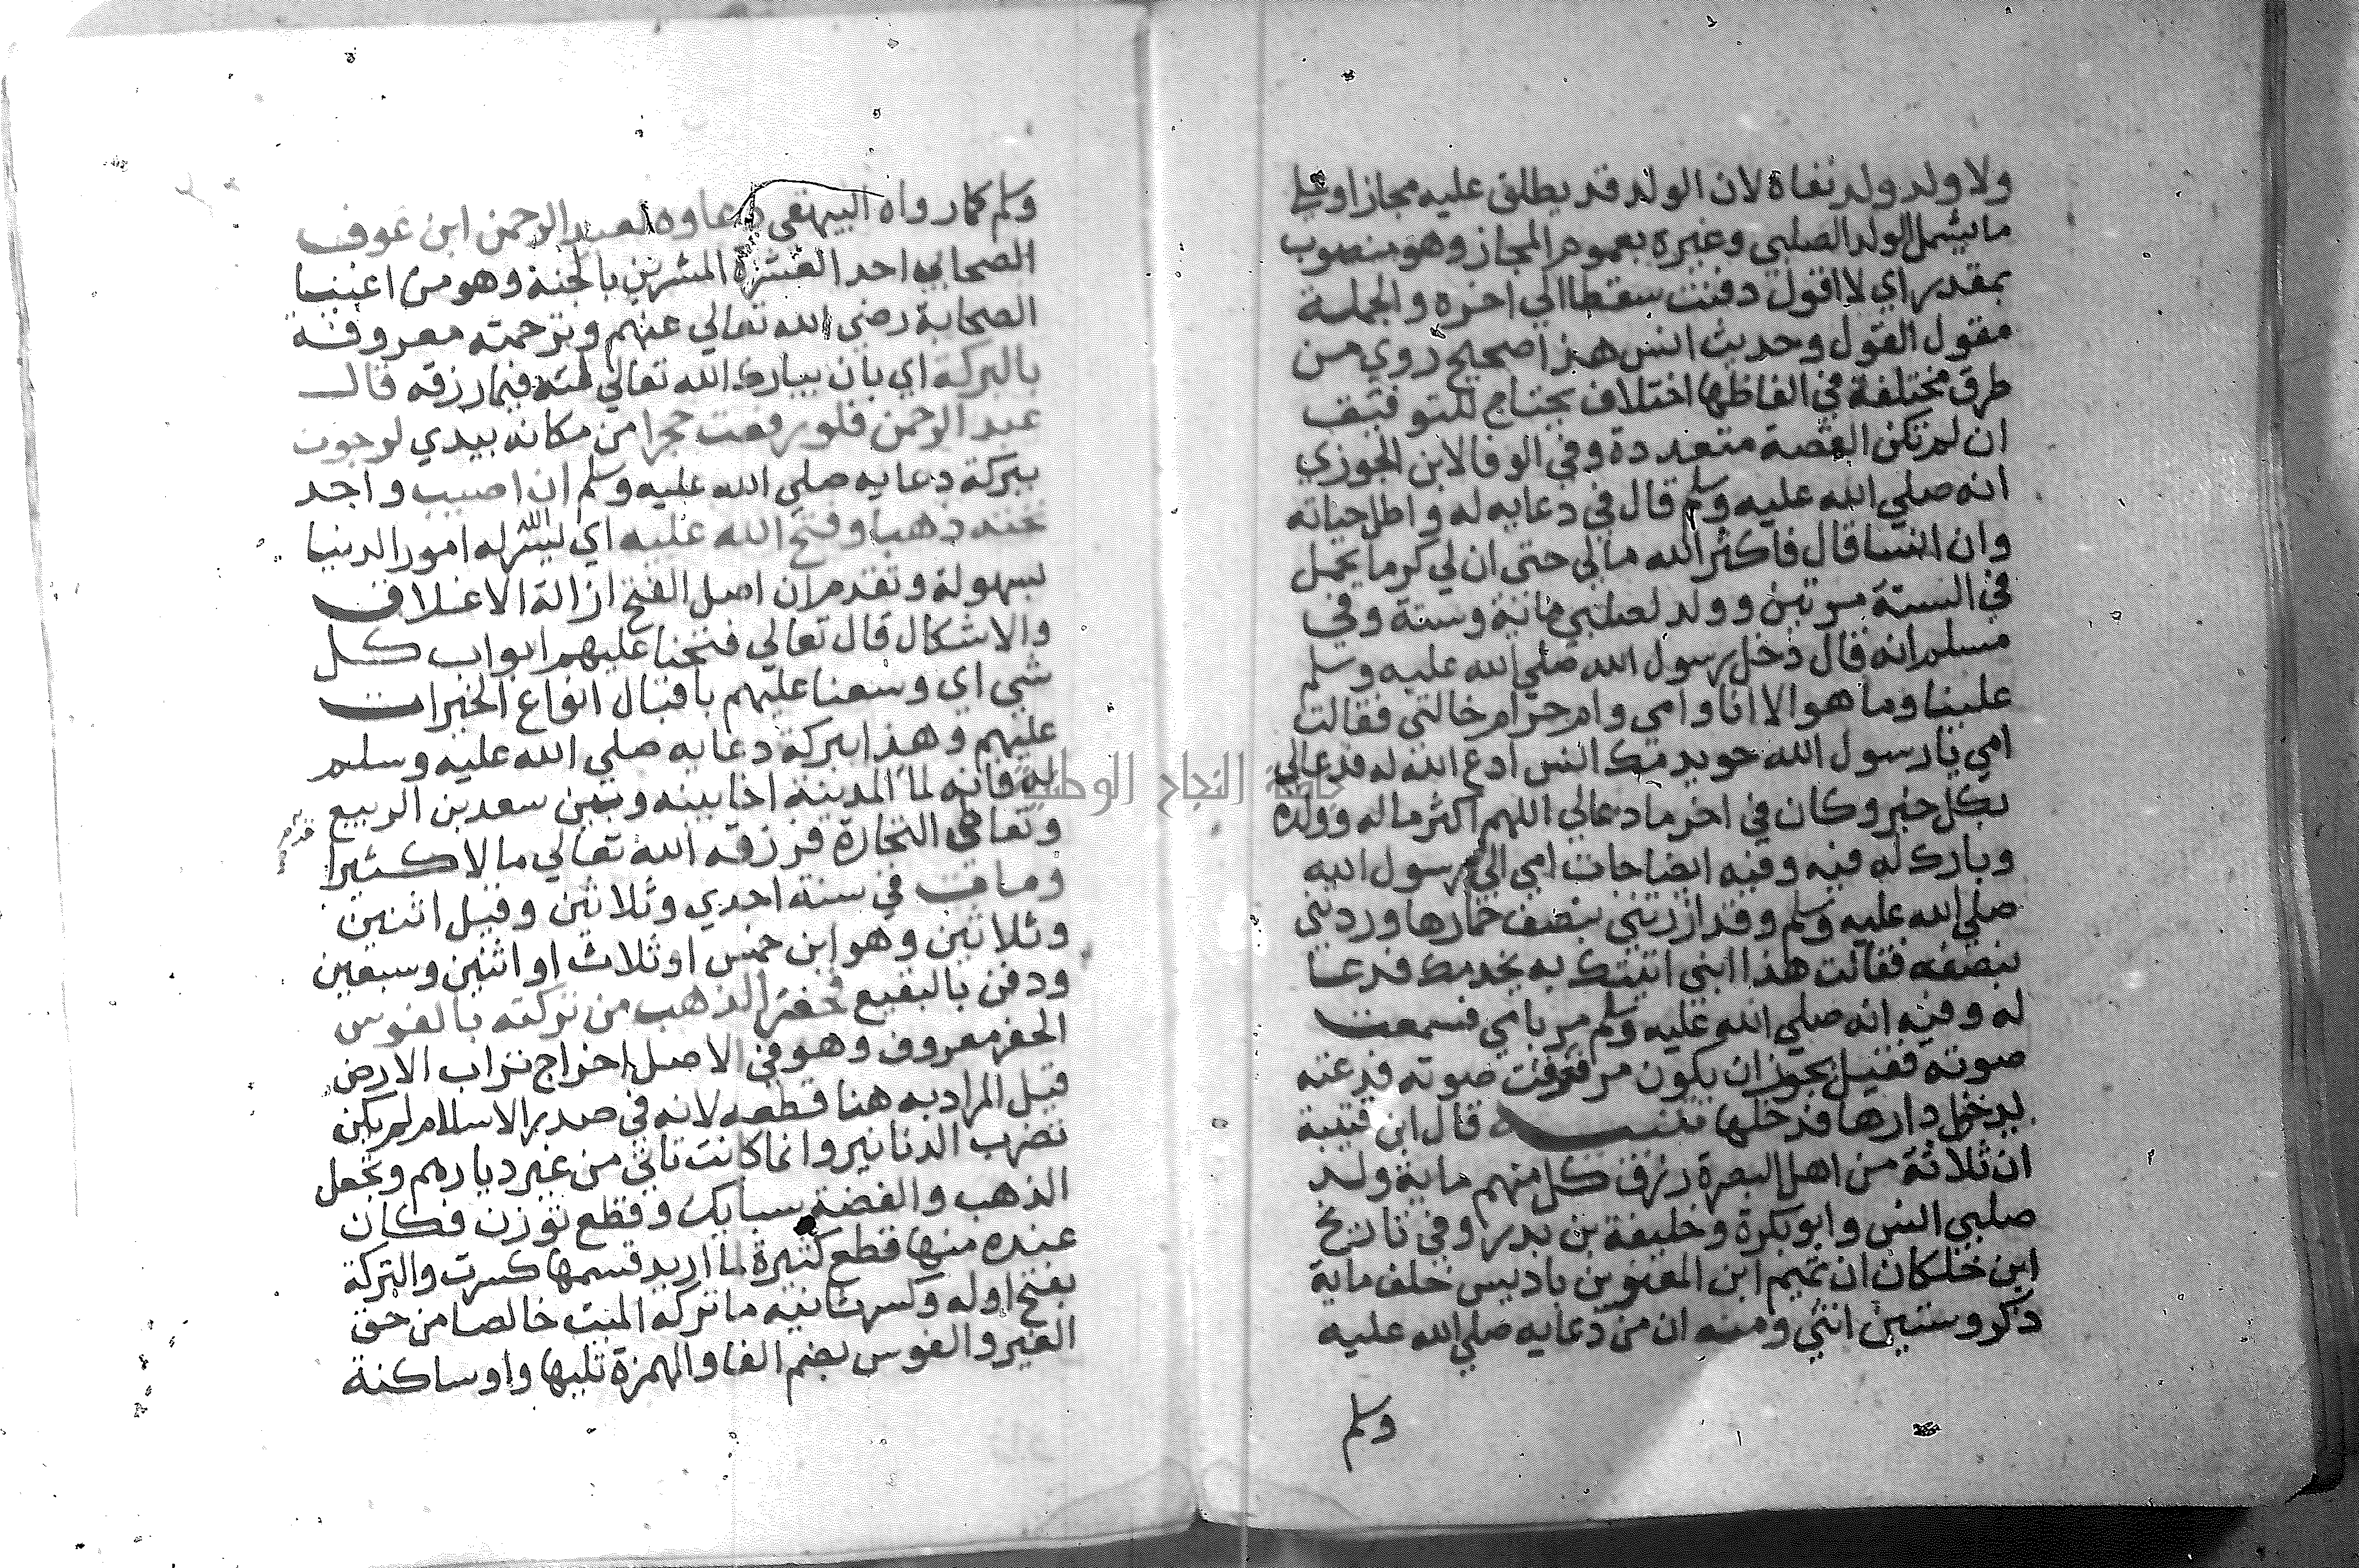 ولا ولد ولد نفاه لان الولد قد يطلق عليه مجازا او علي
ما يشمل الولد الصلبي وغيره بعموم المجاز وهو منصوب
بمقدر اي لا اقول دفنت سقطا الي اخره والجملة
مقول القول وحديث انس هذا صحيح روي من
طرق مختلفة في الفاظها اختلاف يحتاج للتوفيق
ان لم تكن القصة متعددة وفي الوفا لابن الجوزي
انه صلي الله عليه وسلم قال في دعايه له واطل حياته
وان انسا قال فاكثر الله مالي حتى ان لي كرما يحمل
في السنة مرتين وولد لصلبي ماية وستة وفي
مسلم انه قال دخل رسول الله صلي الله عليه وسلم
علينا وما هو الا انا وامي وام حرام خالتي فقالت
امي يا رسول الله خويدمك انس ادع الله له فدعا لي
بكل خير وكان في اخر ما دعا لي اللهم اكثر ماله وولده
وبارك له فيه وفيه ايضا جات امي الي رسول الله
صلي الله عليه وسلم وقد ازرتني بنصف خمارها وردتني
بنصفه فقالت هذا ابني اتيتك به يخدمك فدعا
له وفيه انه صلي الله عليه وسلم مر بامي فسمعت
صوته فقيل يجوز ان يكون مر فعرفت صوته فدعته
يدخل دارها فدخلها تنبيه قال ابن قتيبة
ان ثلاثة من اهل البصرة رزق كل منهم ماية ولد
صلبي انس وابو بكرة وخليفة بن بدر وفي تاريخ
ابن خلكان ان تميم ابن المعز بن باديس خلف ماية
ذكر وستين انثي ومنه ان من دعايه صلي الله عليه
وسلم
وسلم كما رواه البيهقي دعاوه لعبد الرحمن ابن عوف
الصحابي احد العشرة المبشرين بالجنة وهو من اغنيا
الصحابة رضي الله تعالي عنهم وترجمته معروفة
بالبركة اي بان يبارك الله تعالي له فيما رزقه قال
عبد الرحمن فلو رفعت حجرا من مكانه بيدي لرجوت
ببركة دعايه صلي الله عليه وسلم ان اصيب واجد
تحته ذهبا وفتح الله عليه اي ليسر الله له امور الدنيا
بسهولة وتقدم ان اصل الفتح ازالة الاغلاق
والاشكال قال تعالي فتحنا عليهم ابواب كل
شي اي وسعنا عليهم باقبال انواع الخيرات
عليهم وهذا ببركة دعايه صلي الله عليه وسلم
له فانه لما المدينة اخا بينه وبين سعد بن الربيع
قدم
وتعاطى التجارة فرزقه الله تعالي مالا كثيرا
ومات في سنة احدي وثلاثين وقيل اثنين
وثلاثين وهو ابن خمس او ثلاث او اثنين وسبعين
ودفن بالبقيع فحفر الذهب من تركته بالفوس
الحفر معروف وهو في الاصل اخراج تراب الارض
قيل المراد به هنا قطعه لانه في صدر الاسلام لم يكن
تضرب الدنانير وانما كانت تاتي من غير ديارهم وتجعل
الذهب والفضة سبايك وقطع توزن فكان
عنده منها قطع كثيرة لما اريد قسمها كسرت والتركة
بفتح اوله وكسر ثانيه ما تركه الميت خالصا من حق
الغير والفوس بضم الفا والهمزة تليها واو ساكنة
جامعة النجاح الوطنية